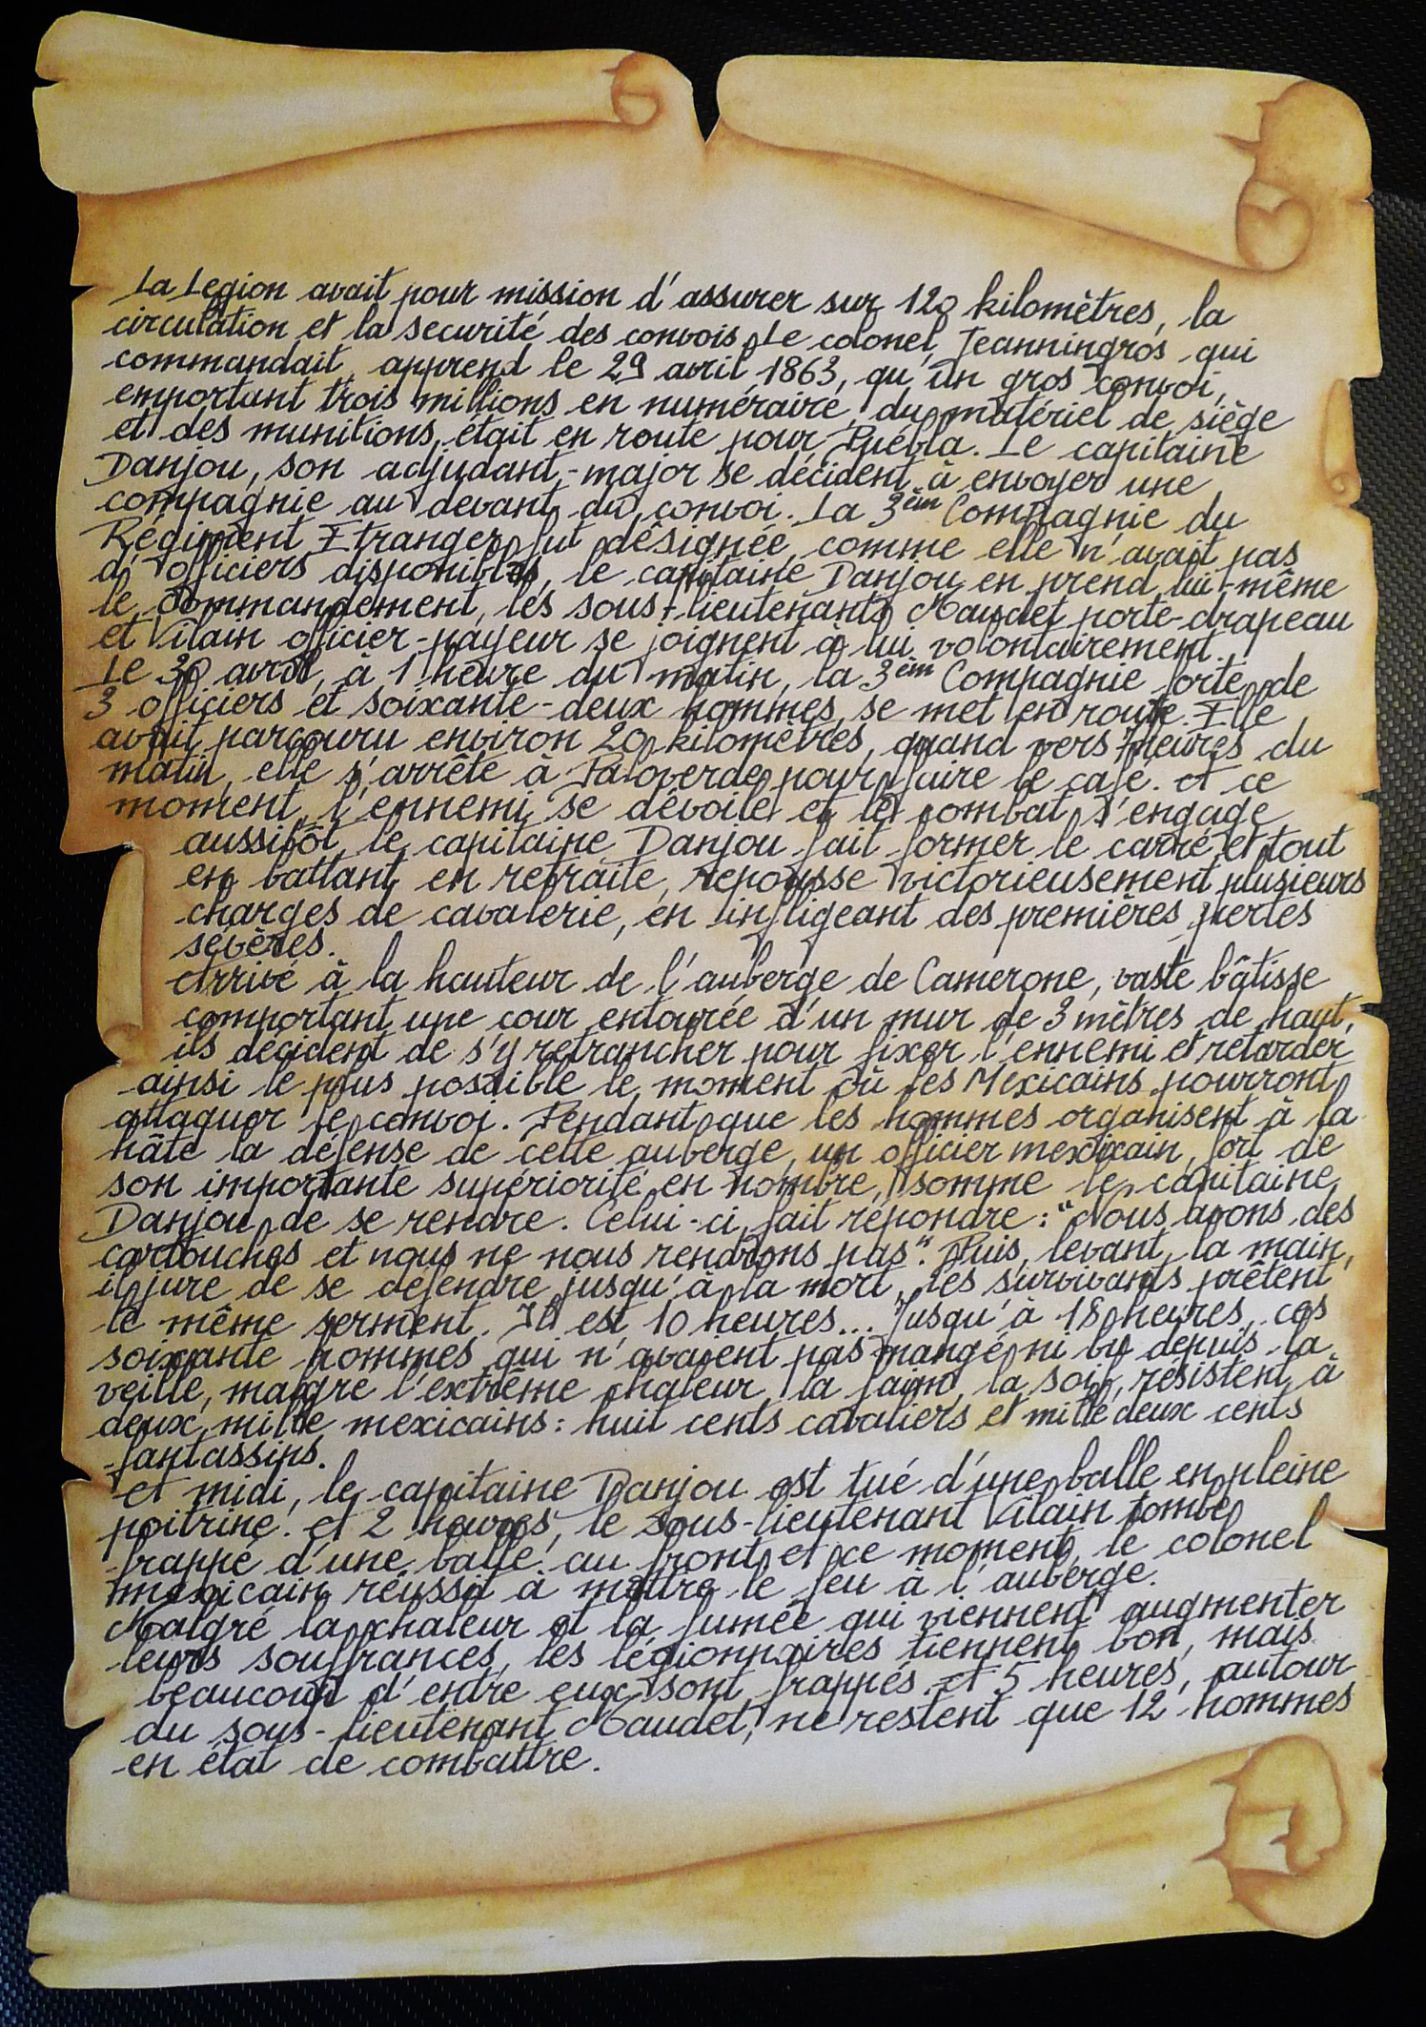 La Legion avait pour mission d'assurer sur 120 kilomètres, la
circulation et la securité des convois. Le colonel Jeanningros qui
commandait, apprend le 29 avril 1863, qu'un gros convoi,
emportant trois millions en numéraire, du matériel de siège
et des munitions, était en route pour Puébla. Le capitaine
Danjou, son adjudant-major se décident à envoyer une
compagnie au devant du convoi. La 3èm Compagnie du
Régiment Etranger fut désignée, comme elle n'avait pas
d'officiers disponibles, le capitaine Danjou en prend lui-même
le commandement, les sous-lieutenants Maudet porte-drapeau
et Vilain officier-payeur se joignent à lui volontairement.
Le 30 avril, à 1 heure du matin, la 3èm Compagnie forte de
3 officiers et soixante-deux hommes, se met en route. Elle
avait parcouru environ 20 kilomètres, quand vers 7 heures du
matin, elle s'arrête à Paloverde pour faire le café. A ce
moment, l'ennemi se dévoile et le combat s'engage
aussitôt, le capitaine Danjou fait former le carré et tout
en battant en retraite, repousse victorieusement plusieurs
charges de cavalerie, en infligeant des premières pertes
sévères.
Arrivé à la hauteur de l'auberge de Camerone, vaste bâtisse
comportant une cour entourée d'un mur de 3 mètres de haut,
ils décident de s'y retrancher pour fixer l'ennemi et retarder
ainsi le plus possible le moment où les Mexicains pourront
attaquer le convoi. Pendant que les hommes organisent à la
hâte la défense de cette auberge, un officier mexicain, fort de
son importante supériorité en nombre, somme le capitaine
Danjou de se rendre. Celui-ci fait répondre : "Nous avons des
cartouches et nous ne nous rendrons pas". Puis, levant la main,
il jure de se défendre jusqu'à la mort, les survivants prêtent
le même serment. Il est 10 heures... Jusqu'à 18 heures, ces
soixante hommes qui n'avaient pas mangé ni bu depuis la
veille, malgré l'extrême chaleur, la faim, la soif, résistent à
deux mille mexicains : huit cents cavaliers et mille deux cents
fantassins.
A midi, le capitaine Danjou est tué d'une balle en pleine
poitrine. A 2 heures, le sous-lieutenant Vilain tombe
frappé d'une balle au front. A ce moment, le colonel
mexicain réussit à mettre le feu à l'auberge.
Malgré la chaleur et la fumée qui viennent augmenter
leurs souffrances, les légionnaires tiennent bon, mais
beaucoup d'entre eux sont frappés. A 5 heures, autour
du sous-lieutenant Maudet, ne restent que 12 hommes
en état de combattre.